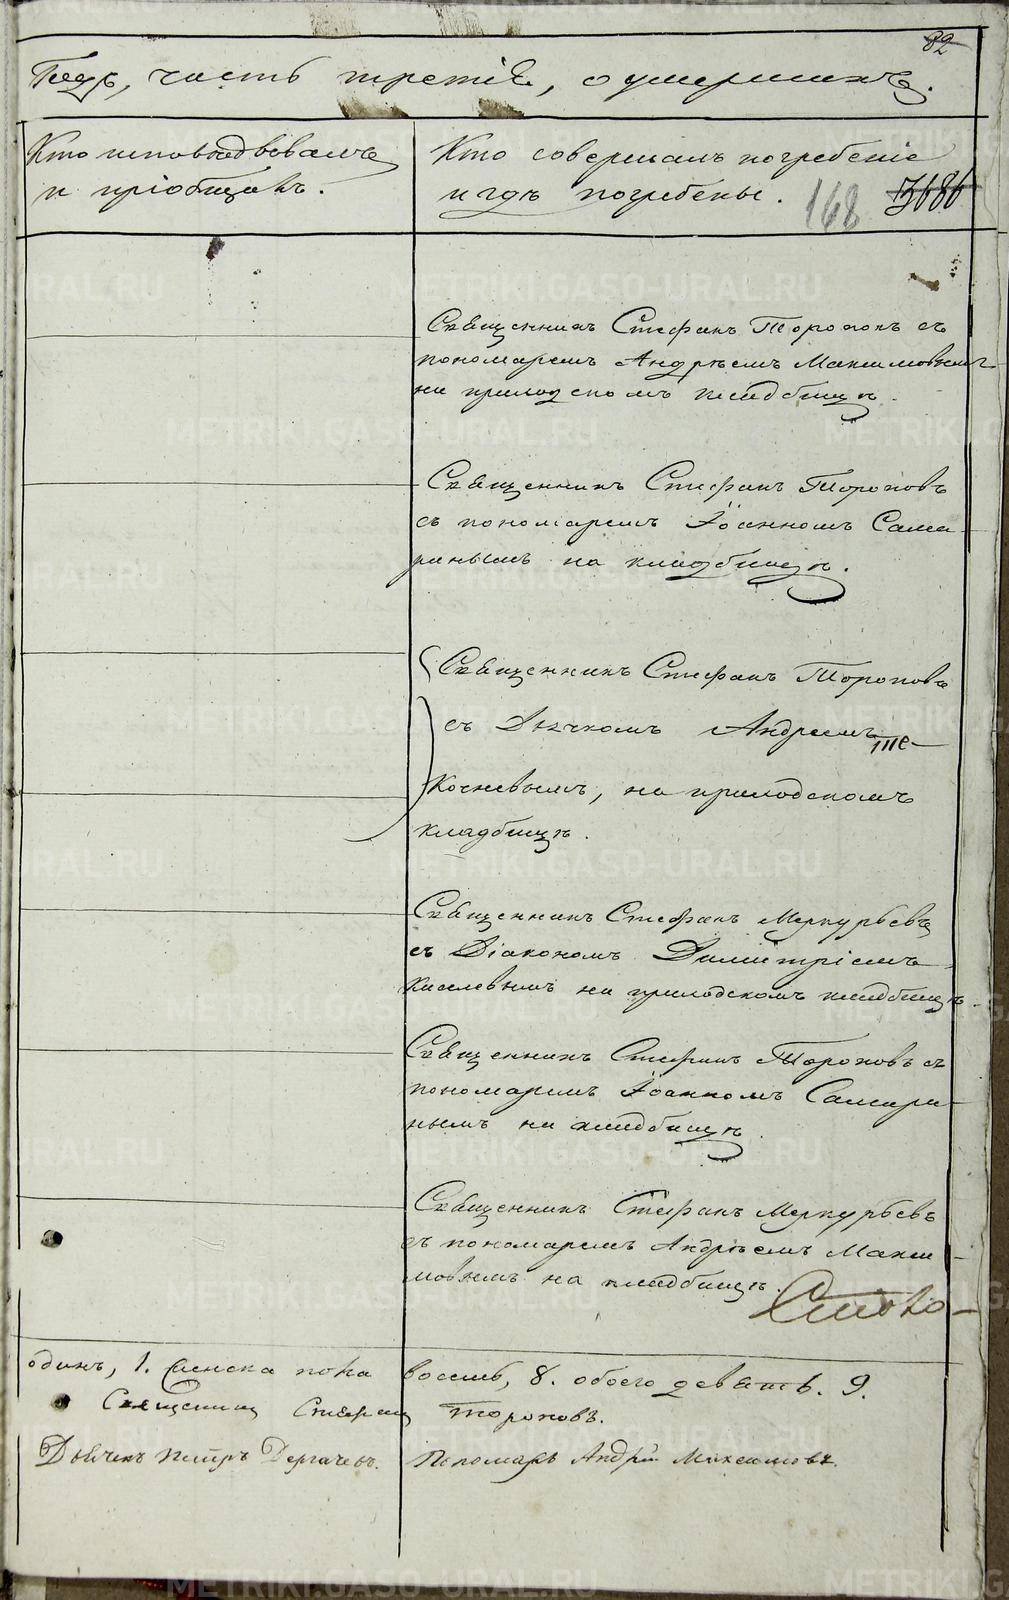 82
Годъ, часть третія, о умершихъ.
Кто исповѣдывалъ
и пріобщалъ.
Кто совершалъ погребеніе
и гдѣ погребены.
168
3686
Священникъ Стефанъ Тороповъ съ
пономаремъ Андреемъ Максимовымъ
на приходскомъ кладбищѣ.
Священникъ Стефанъ Тороповъ
съ пономаремъ Іоанномъ Сама-
ринымъ на кладбищѣ.
Священникъ Стефанъ Тороповъ
съ Дьячкомъ Андреемъ Пе-
кочневымъ, на приходскомъ
кладбищѣ.
Священникъ Стефанъ Меркурьевъ
съ Діакономъ Димитріемъ
Киселевымъ на приходскомъ кладбищѣ.
Священникъ Стефанъ Тороповъ съ
пономаремъ Іоанномъ Самари-
нымъ на кладбищѣ.
Священникъ Стефанъ Меркурьевъ
съ пономаремъ Андреемъ Макси-
мовымъ на кладбищѣ.
одинъ, 1. женска пола восемь, 8. обоего девять. 9.
Священник Стефан Тороповъ.
Дьячекъ Петръ Дергачевъ. Пономарь Андрей Максимовъ.
METRIKI.GASO-URAL.RU